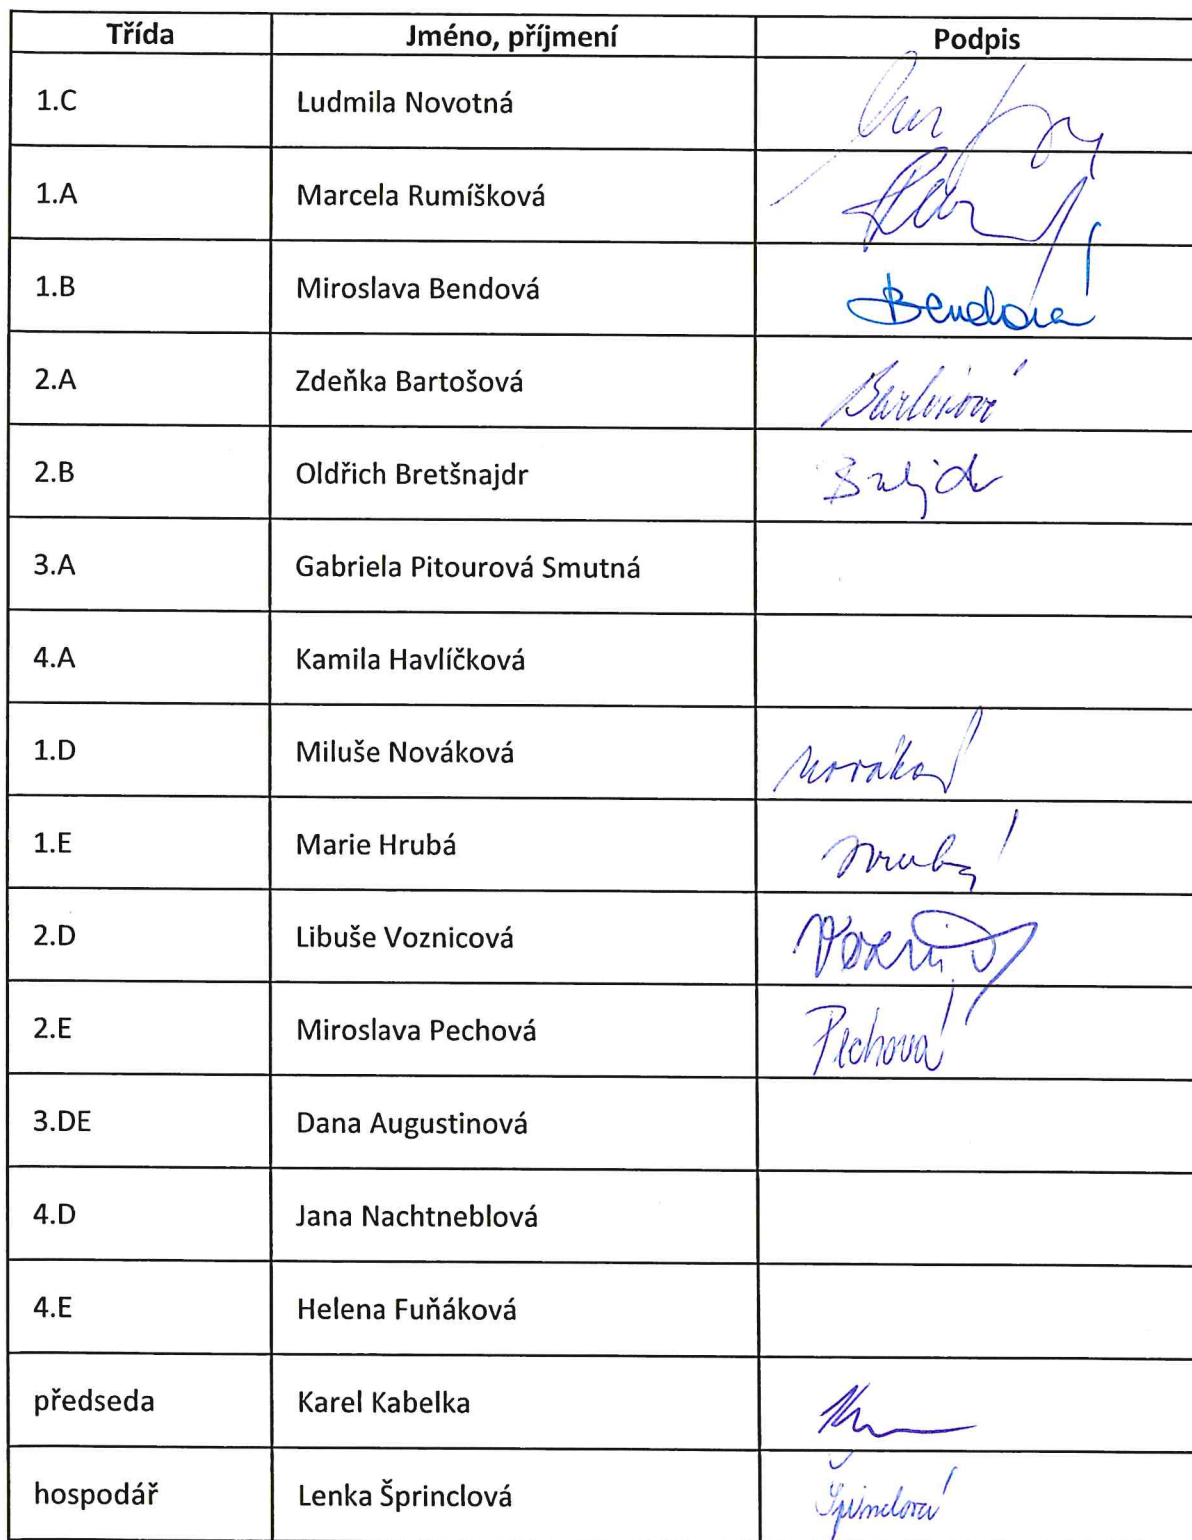 Třída Jméno, příjmení Podpis
1.C Ludmila Novotná
1.A Marcela Rumíšková
1.B Miroslava Bendová Bendová
2.A Zdeňka Bartošová Bartošová
2.B Oldřich Bretšnajdr
3.A Gabriela Pitourová Smutná
4.A Kamila Havlíčková
1.D Miluše Nováková
1.E Marie Hrubá Hrubá
2.D Libuše Voznicová
2.E Miroslava Pechová Pechová
3.DE Dana Augustinová
4.D Jana Nachtneblová
4.E Helena Fuňáková
předseda Karel Kabelka
hospodář Lenka Šprinclová Šprinclová